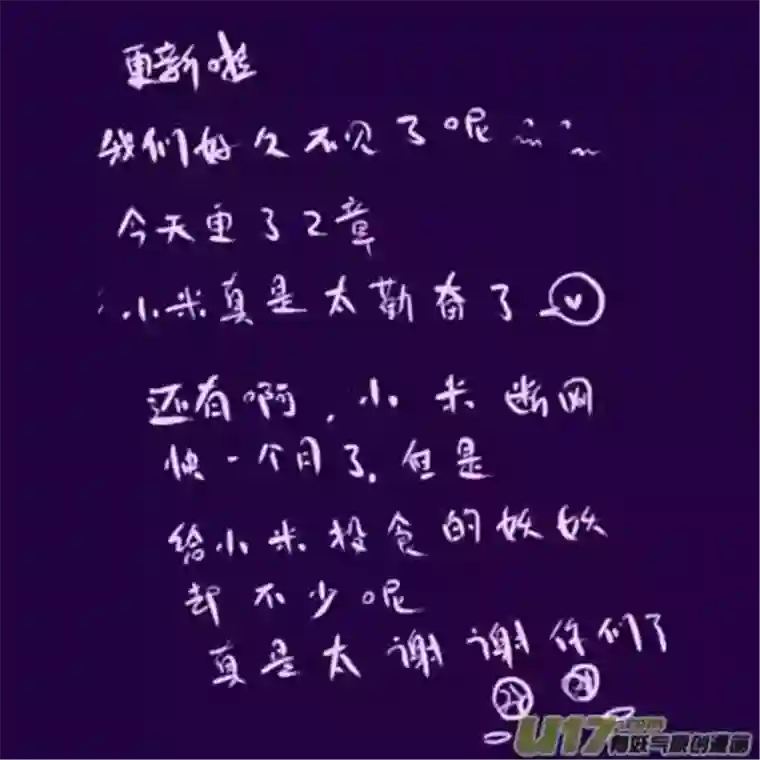 更新啦
我们好久不见了呢
今天更了2章
小米真是太勤奋了
还有啊，小米断网
快一个月了，但是
给小米投食的妖妖
却不少呢
真是太谢谢你们了
U17.com
有妖气原创漫画